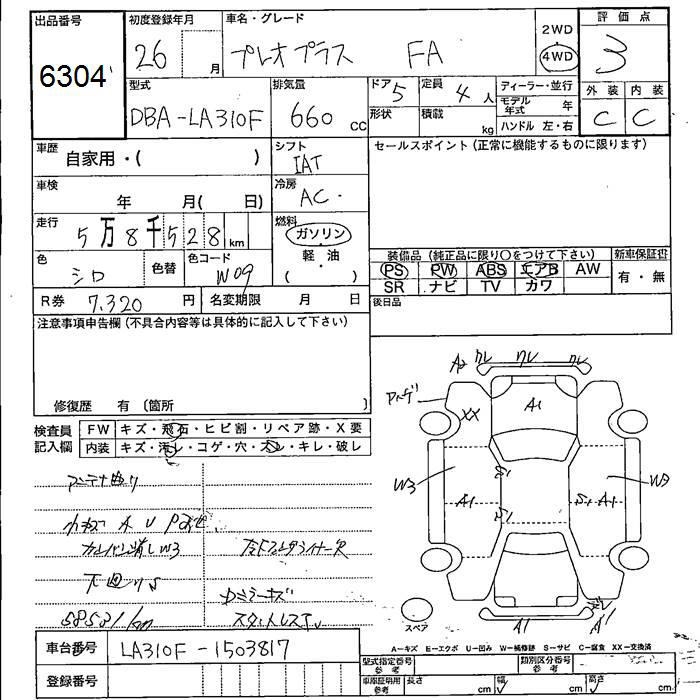 出品番号
6304
初度登録年月
26 月
車名・グレード
プレオプラス FA
2WD
4WD
評価点
3
外装 内装
C C
型式
DBA-LA310F
排気量
660 cc
ドア 5
形状
定員 4 人
積載 kg
ディーラー・並行
モデル年式 年
ハンドル 左・右
車歴 自家用・( )
シフト
IAT
セールスポイント(正常に機能するものに限ります)
車検 年 月( 日)
冷房
AC
走行 5万8千528 km
燃料
ガソリン
軽・油
( )
色 シロ
色替
色コード W09
装備品(純正品に限り○をつけて下さい)
PS PW ABS エアB AW
SR ナビ TV カワ
新車保証書
有・無
R券 7,320 円
名変期限 月 日
後日品
注意事項申告欄(不具合内容等は具体的に記入して下さい)
修復歴 有 〔箇所 〕
検査員記入欄
FW キズ・飛石・ヒビ割・リペア跡・X要
内装 キズ・汚レ・コゲ・穴・スレ・キレ・破レ
アンテナ曲り
小キズ A U P
下回りS
58531km
キズ
スタットレス
A2 クレ クレ クレ
XX
A1
W3
A1
S1
S1
S1 A1
W3
A1
A1
スペア
A-キズ E-エクボ U-凹み W-補修跡 S-サビ C-腐食 XX-交換済
車台番号 LA310F-1503817
登録番号
型式指定番号 参考
類別区分番号 参考
車庫証明用 参考
長さ cm 幅 cm 高さ cm